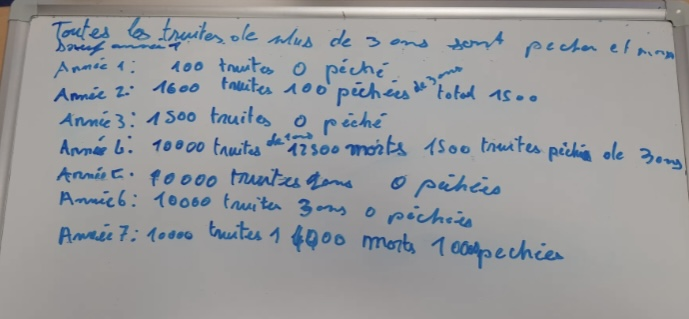 Toutes les truites de plus de 3 ans sont pecher et
Sauf année 1
Année 1: 100 truites 0 péché
Année 2: 1600 truites 100 péchées de 3 ans total 1500
Année 3: 1500 truites 0 péché
Année 4: 10000 truites de 1 ans 12500 morts 1500 truites péchés de 3 ans
Année 5: 10000 truites 2 ans 0 péchées
Année 6: 10000 truites 3 ans 0 péchées
Année 7: 10000 truites 1 morts pechées